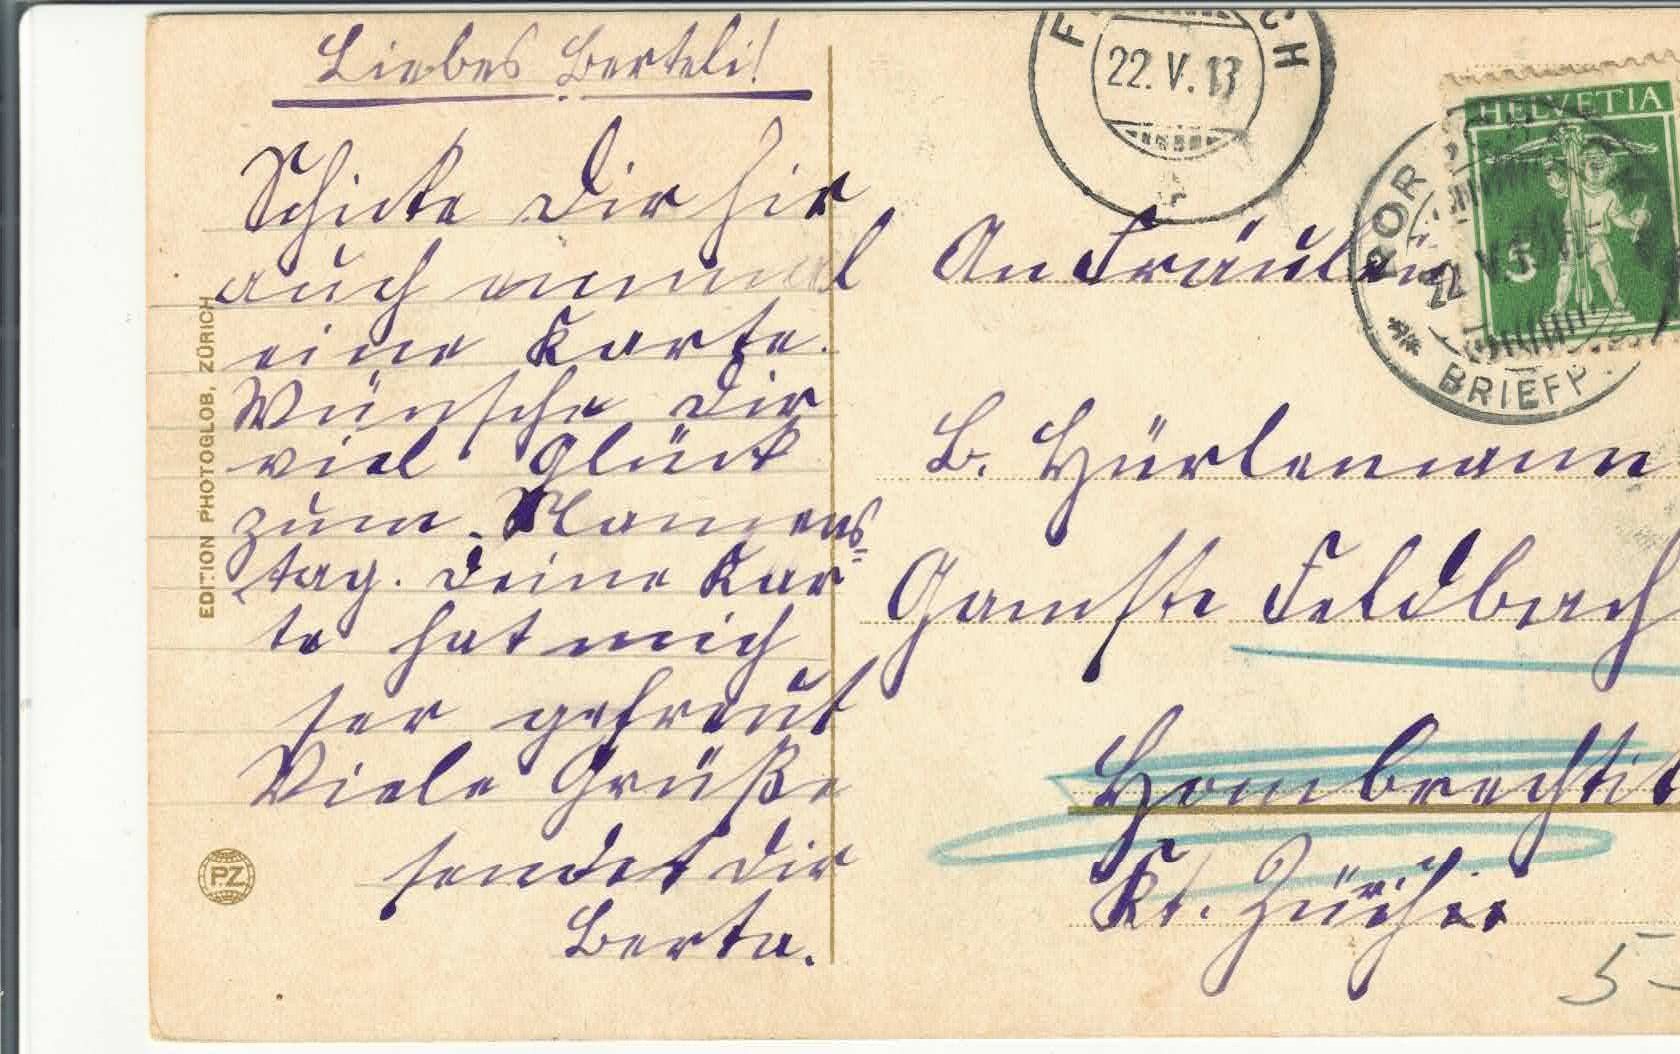 Liebes Berteli!
Schicke Dir hir
auch einmal
eine Karte.
Wünsche Dir
viel Glück
zum Namens=
tag. Deine Kar
te hat mich
ser gefreut
Viele Grüße
sendet Dir
Berta.
EDITION PHOTOGLOB, ZÜRICH
PZ
22.V.13
HELVETIA
5
22.V.13
BRIEFP.
An Fräulein
B. Hürlemann
Feldbach
Hombrechtik
Kt. Zürich
5-